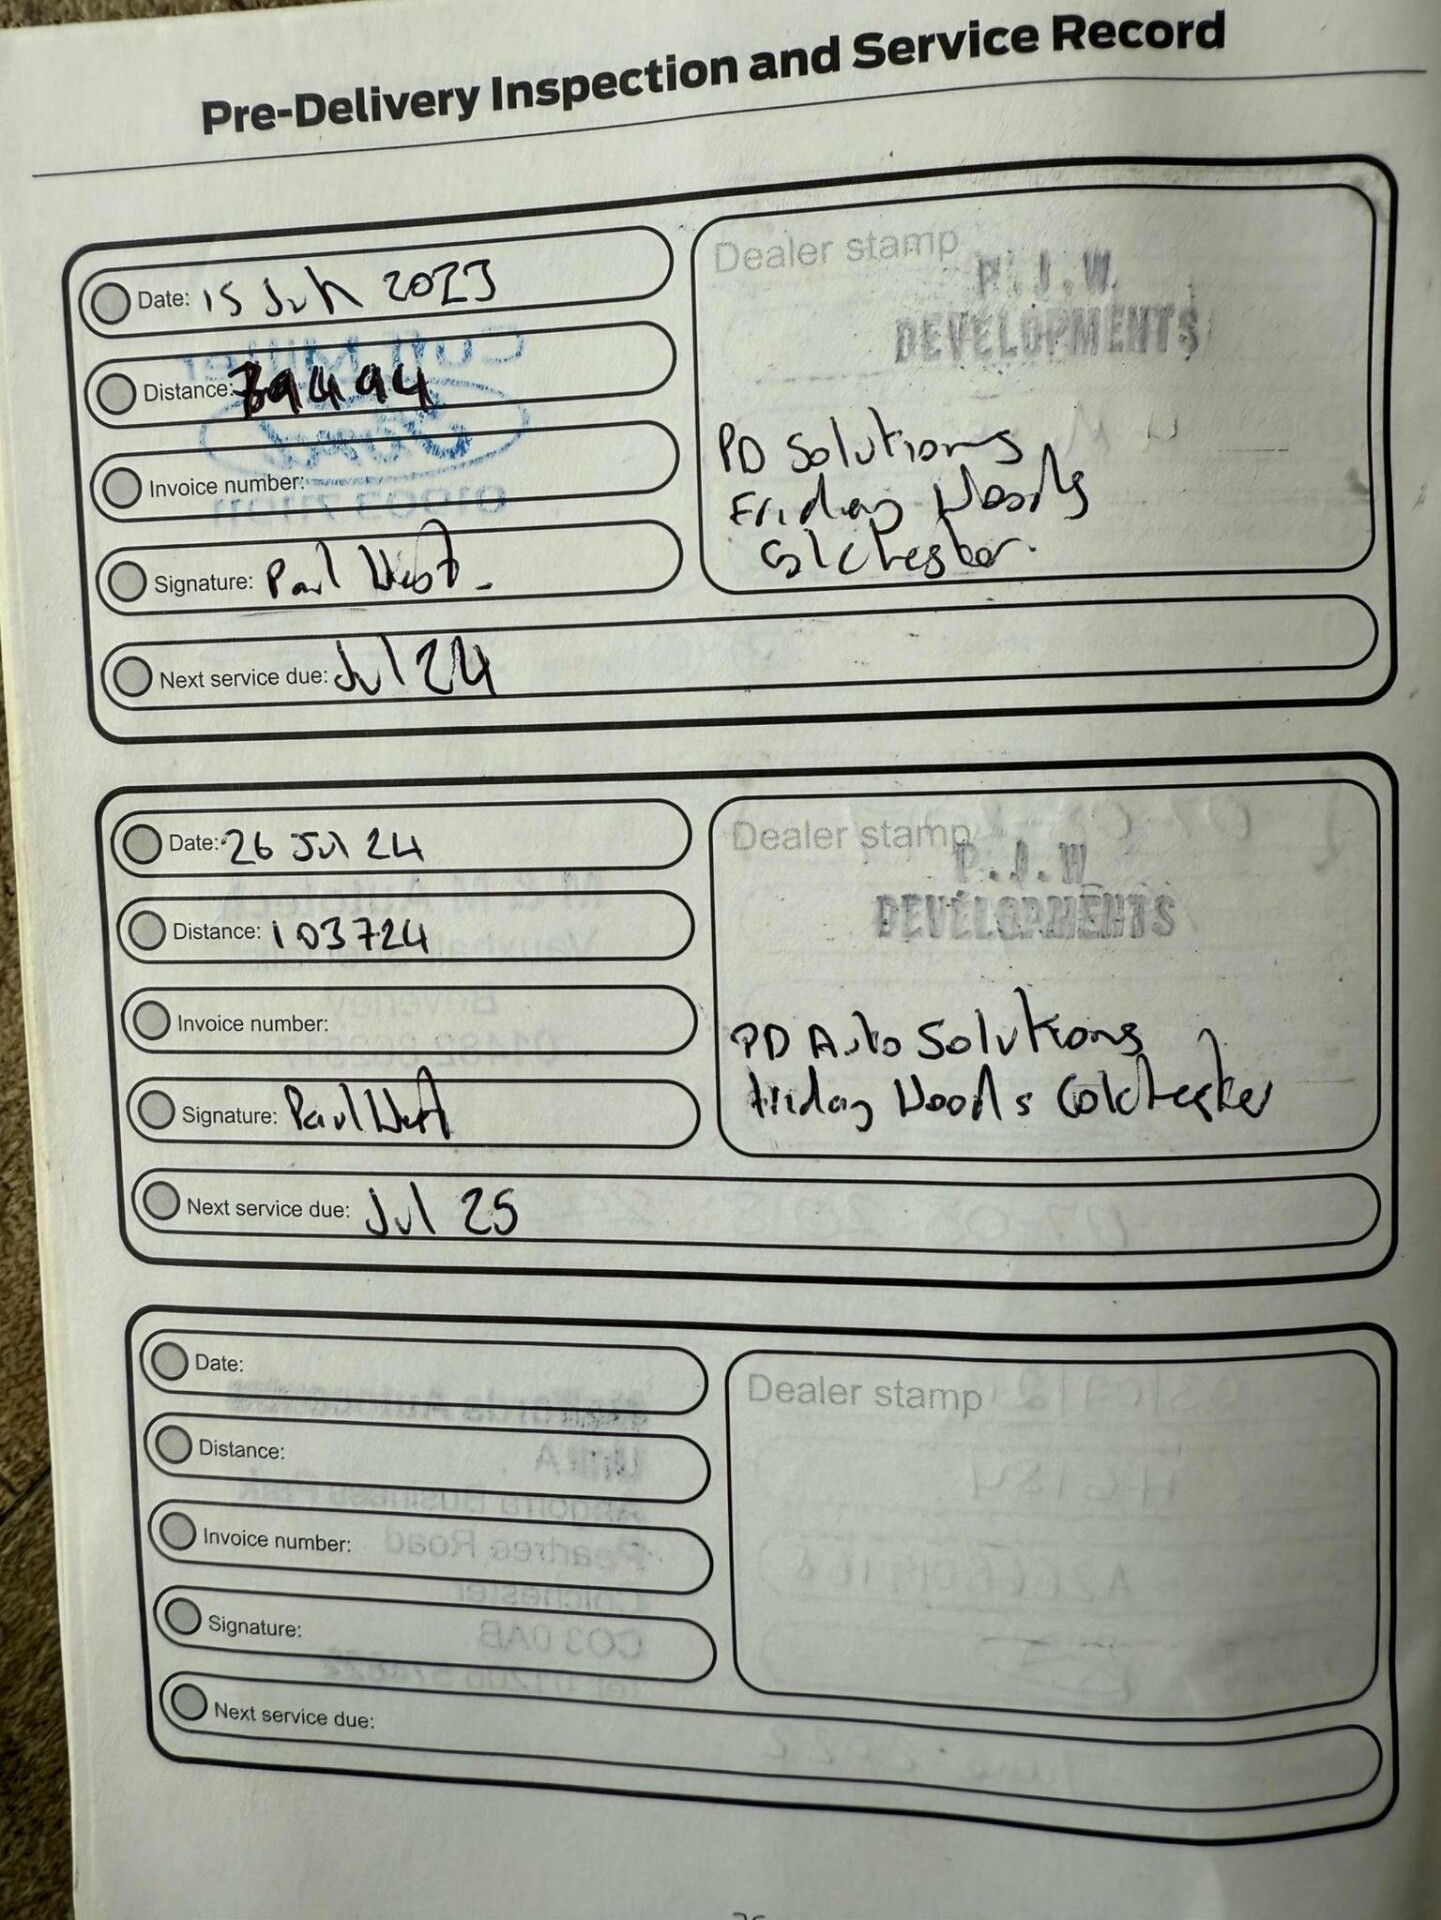 Pre-Delivery Inspection and Service Record
Date: 15 Jul 2023
Distance: 79494
Invoice number:
Signature: Paul West
Next service due: Jul 24
Dealer stamp
P.J.W.
DEVELOPMENTS
PD Solutions
Friday Woods
Colchester.
Date: 26 Jul 24
Distance: 103724
Invoice number:
Signature: Paul West
Next service due: Jul 25
Dealer stamp
P.J.W
DEVELOPMENTS
PD Auto Solutions
Friday Woods Colchester
Date:
Distance:
Invoice number:
Signature:
Next service due:
Dealer stamp